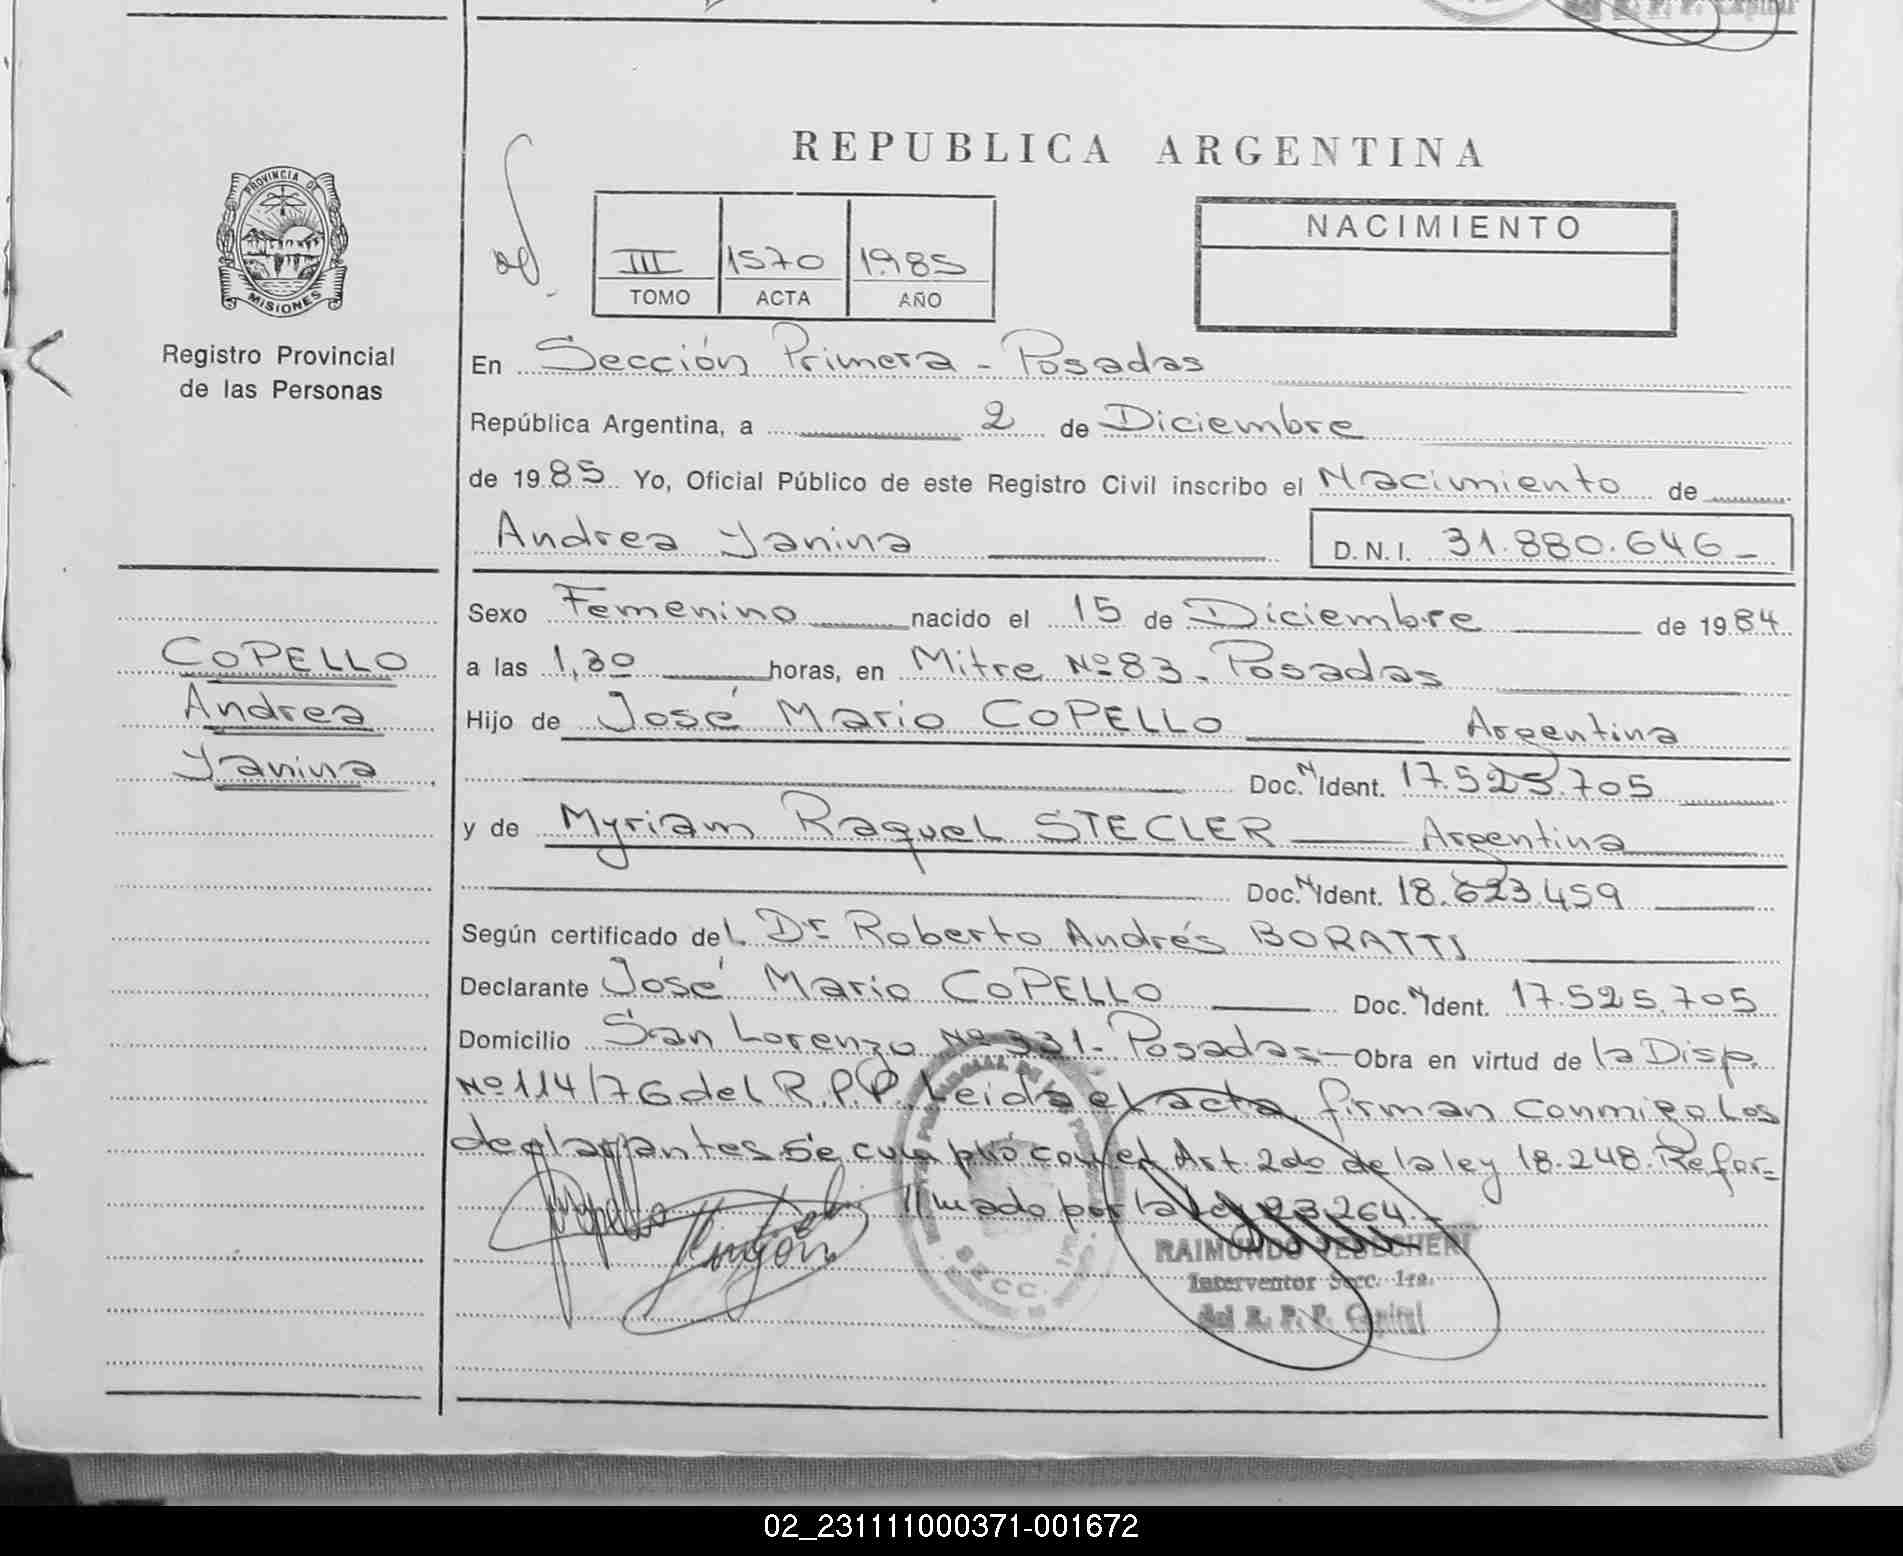 REPUBLICA ARGENTINA
PROVINCIA DE
MISIONES
Registro Provincial
de las Personas
III 1570 1985
TOMO ACTA AÑO
NACIMIENTO
En Sección Primera - Posadas
República Argentina, a 2 de Diciembre
de 1985 Yo, Oficial Público de este Registro Civil inscribo el Nacimiento de
Andrea Yanina D.N.I. 31.880.646-
COPELLO
Andrea
Yanina
Sexo Femenino nacido el 15 de Diciembre de 1984
a las 1,30 horas, en Mitre Nº 83 - Posadas
Hijo de José Mario COPELLO Argentina
Doc. N Ident. 17.525.705
y de Myriam Raquel STECLER Argentina
Doc. N Ident. 18.623.459
Según certificado del Dr Roberto Andrés BORATTI
Declarante José Mario COPELLO Doc. N Ident. 17.525.705
Domicilio San Lorenzo Nº 331- Posadas- Obra en virtud de la Disp.
Nº 114/76 del R.P.P. Leida el acta firman conmigo los
declarantes se cumplió con el Art. 2do de la ley 18.248. Refor=
//mado por la ley 23.264.-
RAIMUNDO
Interventor Secc. 1ra.
del R. P. P. Capital
SECC.
02_231111000371-001672